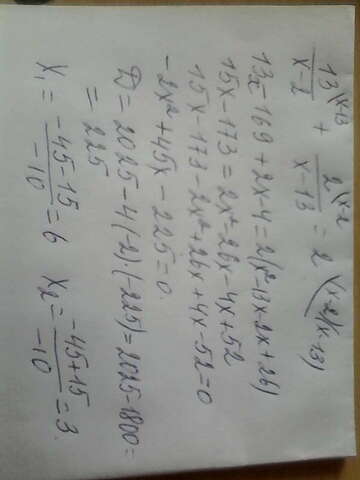 13/(x-2) \x-13 + 2/(x-13) \x-2 = 2 \(x-2)(x-13)
13x-169+2x-4=2(x²-13x-2x+26)
15x-173=2x²-26x-4x+52
15x-173-2x²+26x+4x-52=0
-2x²+45x-225=0.
D=2025-4(-2)·(-225)=2025-1800=
=225
X₁=(-45-15)/(-10)=6 X₂=(-45+15)/(-10)=3.